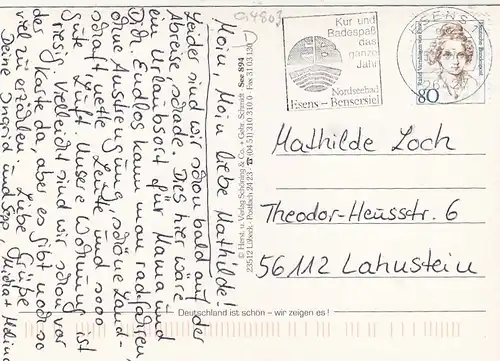 Moin, Moin liebe Mathilde!
Leider sind wir schon bald auf der
Abreise schade. Dies hier wäre
ein Urlaubsort für Mama und
Dich. Endlos kann man radfahren,
ohne Anstrengung, schöne Land-
schaft, nette Leute und sooo
gute Luft. Unsere Wohnung ist
riesig. Vielleicht sind wir schon vor
der Karte da, aber es gibt noch so
viel zu erzählen. Liebe Grüße
Deine Ingrid und Sepp,
© Herst. u. Verlag Schöning & Co. + Gebr. Schmidt · See 894
23512 Lübeck · Postfach 24 23 · ☎ (04 51) 310 310 0 · Fax 31 03 130
Kur und
Badespaß
das
ganze
Jahr
Nordseebad
Esens – Bensersiel
ESENS
80
Mathilde Loch
Theodor-Heusstr. 6
56112 Lahnstein
Deutschland ist schön – wir zeigen es!